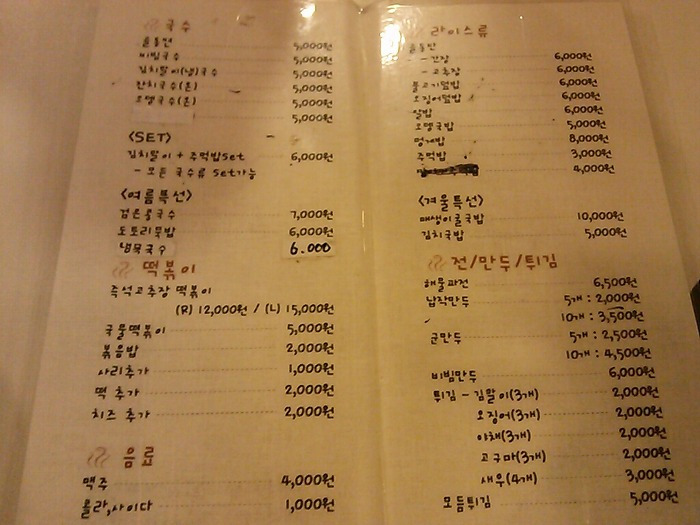 국수
울동면 5,000원
비빔국수 5,000원
김치말이(냉)국수 5,000원
잔치국수(온) 5,000원
오뎅국수(온) 5,000원
5,000원
<SET>
김치말이 + 주먹밥set 6,000원
- 모든 국수류 set가능
<여름특선>
검은콩국수 7,000원
도토리묵밥 6,000원
냉묵국수 6.000
떡볶이
즉석고추장 떡볶이
(R) 12,000원 / (L) 15,000원
국물떡볶이 5,000원
볶음밥 2,000원
사리추가 1,000원
떡 추가 2,000원
치즈 추가 2,000원
음료
맥주 4,000원
콜라,사이다 1,000원
라이스류
- 간장 6,000원
- 고추장 6,000원
불고기덮밥 6,000원
오징어덮밥 6,000원
알밥 6,000원
오뎅국밥 5,000원
멍게밥 8,000원
주먹밥 3,000원
4,000원
<겨울특선>
매생이굴국밥 10,000원
김치국밥 5,000원
전/만두/튀김
해물파전 6,500원
납작만두 5개 : 2,000원
10개 : 3,500원
군만두 5개 : 2,500원
10개 : 4,500원
비빔만두 6,000원
튀김 - 김말이(3개) 2,000원
오징어(3개) 2,000원
야채(3개) 2,000원
고구마(3개) 2,000원
새우(4개) 3,000원
모듬튀김 5,000원